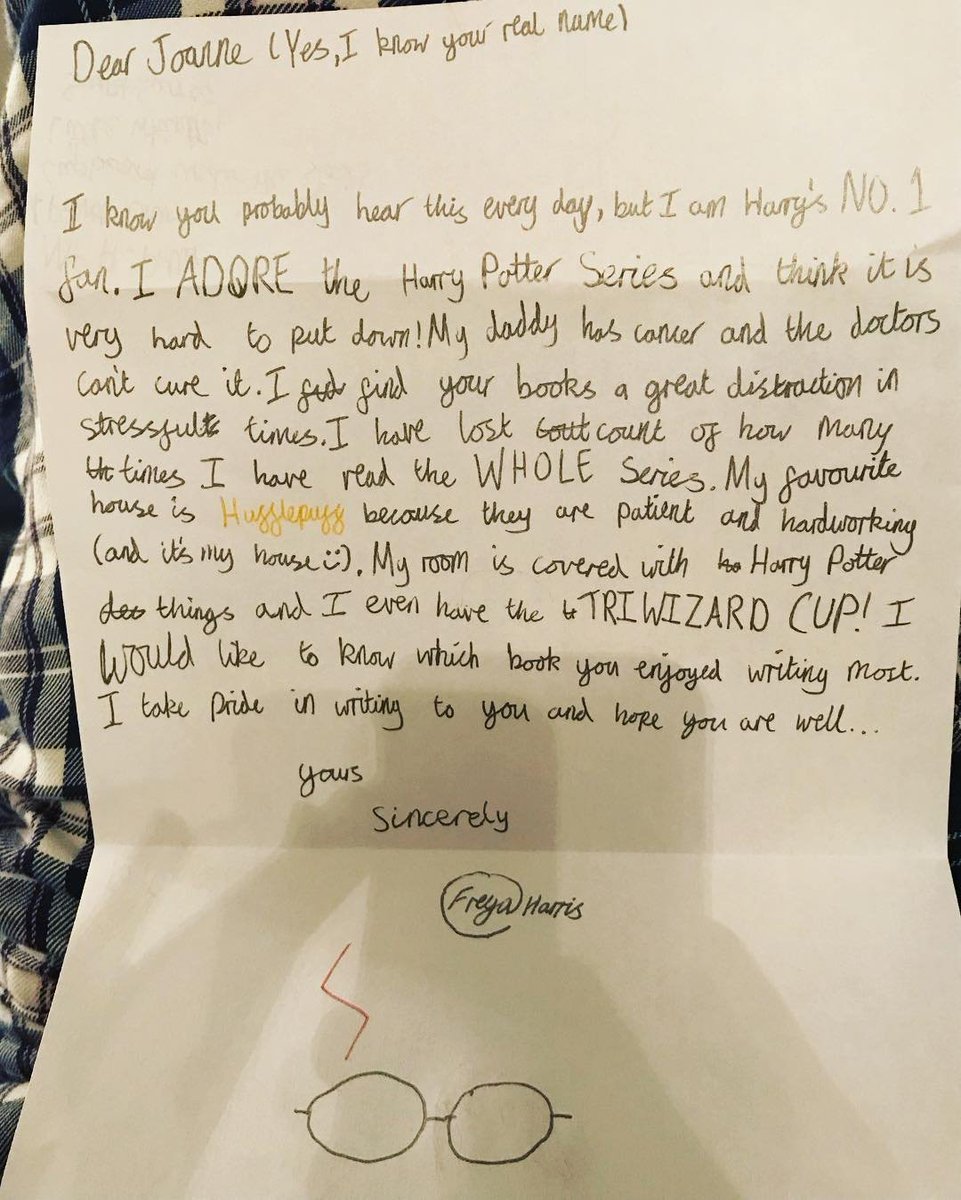 Dear Joanne (Yes, I know your real name)
I know you probably hear this every day, but I am Harry's NO. 1
fan. I ADORE the Harry Potter Series and think it is
very hard to put down! My daddy has cancer and the doctors
can't cure it. I find your books a great distraction in
stressful times. I have lost count of how many
times I have read the WHOLE Series. My favourite
house is Hufflepuff because they are patient and hardworking
(and it's my house :)). My room is covered with Harry Potter
things and I even have the TRIWIZARD CUP! I
would like to know which book you enjoyed writing most.
I take pride in writing to you and hope you are well...
yours
Sincerely
Freya Harris